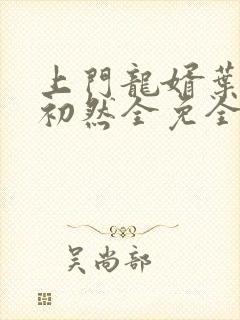 上門龍婿葉
初然全免全
吴尚部